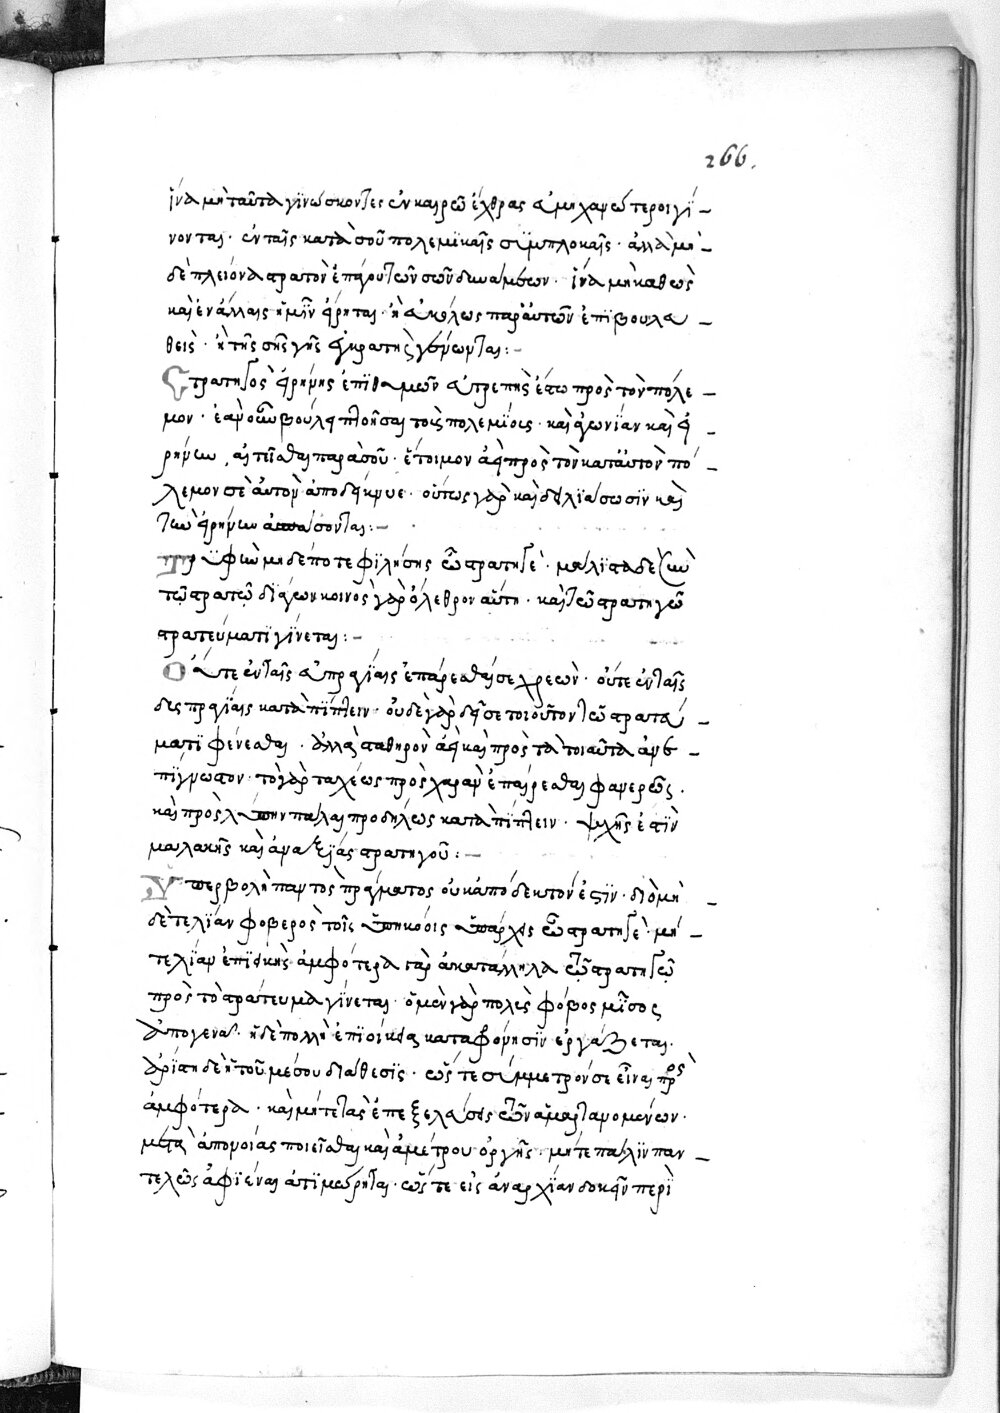 266.
ἵνα μὴ ταῦτα γινώσκοντες ἐν καιρῶ ἔχθρας ἀμηχανώτεροι γί-
νονται· ἐν ταῖς κατὰ σοῦ πολεμικαῖς συμπλοκαῖς· ἀλλὰ μη-
δὲ πλείονα στρατὸν ἐπάγου τῶν σῶν δυνάμεων· ἵνα μὴ καθὼς
καὶ ἐν ἄλλοις ἡμῖν εἴρηται· ἢ εὐκόλως παρ' αὐτῶν ἐπιβουλευ-
θεὶς· ἢ τῆς σῆς γῆς ἐγκρατεῖς γένωνται:-
Στρατηγὸς εἰρήνης ἐπιθυμῶν εὐτρεπὴς ἔστω πρὸς τὸν πόλε-
μον· ἐὰν οὖν βούλει πτοῆσαι τοὺς πολεμίους· καὶ ἀγωνίαν καὶ εἰ-
ρήνην, αἰτεῖσθαι παρὰ σοῦ· ἕτοιμον ἀεὶ πρὸς τὸν κατ' αὐτὸν πό-
λεμον σεαυτὸν ἀποδείκνυε· οὕτως γὰρ καὶ δειλιάσωσιν καὶ
τὴν εἰρήνην ἀσπάσονται:-
Τρυφὴν μηδέποτε φιλήσης ὦ στρατηγὲ· μάλιστα δὲ σὺν
τῶ στρατῶ διάγων κοινὸς γὰρ ὄλεθρον αὕτη· καὶ τῶ στρατηγῶ
στρατεύματι γίνεται:-
Οὔτε ἐν ταῖς εὐπραγίαις ἐπαίρεσθαί σε χρεὼν· οὔτε ἐν ταῖς
δυσπραγίαις καταπίπτειν· οὐδὲ γὰρ δεῖ σε τοιοῦτον τῶ στρατεύ-
ματι φαίνεσθαι· ἀλλὰ σταθηρὸν ἀεὶ καὶ πρὸς τὰ τοιαῦτα ἀνε-
πίγνωστον· τὸ γὰρ ταχέως πρὸς χαρὰν ἐπαίρεσθαι φανερῶς·
καὶ πρὸς λύπην πάλαι προδήλως καταπίπτειν· ψυχῆς ἐστὶν
μαλακῆς καὶ ἀναξίας στρατηγοῦ:-
Ὑπερβολὴ παντὸς πράγματος οὐκ ἀπόδεκτον ἐστὶν· διὸ μὴ
δὲ τελίαν φοβερὸς τοῖς ὑπηκόοις ὑπάρχεις ὦ στρατηγὲ· μή-
τε λίαν ἐπιεικὴς ἀμφότερα γὰρ ἀκατάλληλα τῶ στρατηγῶ
πρὸς τὸ στράτευμα γίνεται· ὁ μὲν γὰρ πολὺς φόβος μῖσος
ἀπογεννᾶ· ἡ δὲ πολλὴ ἐπιείκεια καταφρόνησιν ἐργάζεται·
ἀρίστη δὲ ἡ τοῦ μέσου διάθεσις· ὥς τε σύμμετρόν σε εἶναι πρὸς
ἀμφότερα· καὶ μήτε τὰς ἐπεξελεύσεις τῶν ἁμαρτανομένων·
μετὰ ἀπονοίας ποιεῖσθαι καὶ ἀμέτρου ὀργῆς· μήτε πάλιν παν-
τελῶς ἀφιέναι ἀτιμώρητα· ὥς τε εἰς ἀναρχίαν δοκεῖν περὶ